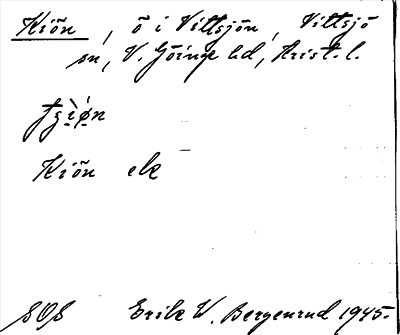 Kiön, ö i Vittsjön, Vittsjö
sn, V. Göinge hd, Krist. l.
Kiön ek
SOS Erik W. Bergenrud 1945.